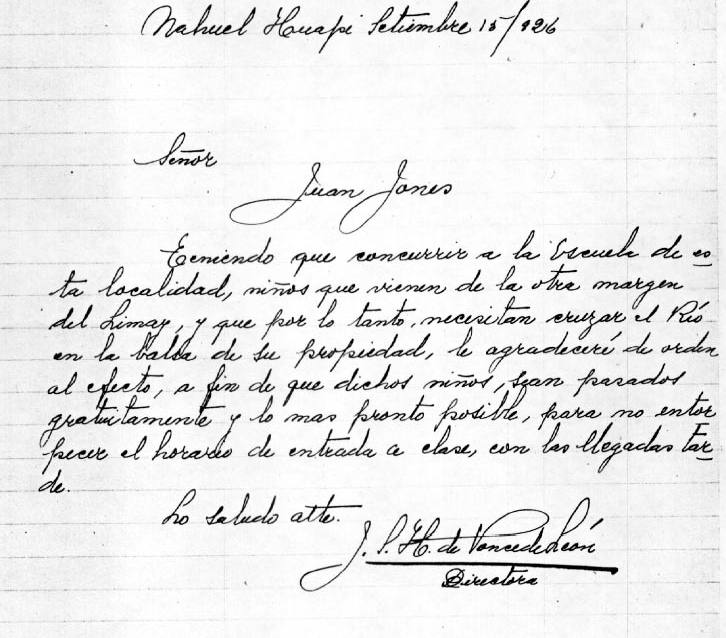 Nahuel Huapi Setiembre 15/926
Señor
Juan Jones
Teniendo que concurrir a la Escuela de es
ta localidad, niños que vienen de la otra margen
del Limay, y que por lo tanto, necesitan cruzar el Río
en la balsa de su propiedad, le agradeceré dé orden
al efecto, a fin de que dichos niños, sean pasados
gratuitamente y lo mas pronto posible, para no entor
pecer el horario de entrada a clase, con las llegadas tar
de.
Lo saludo atte.
J. P. H. de Poncedeleón
Directora